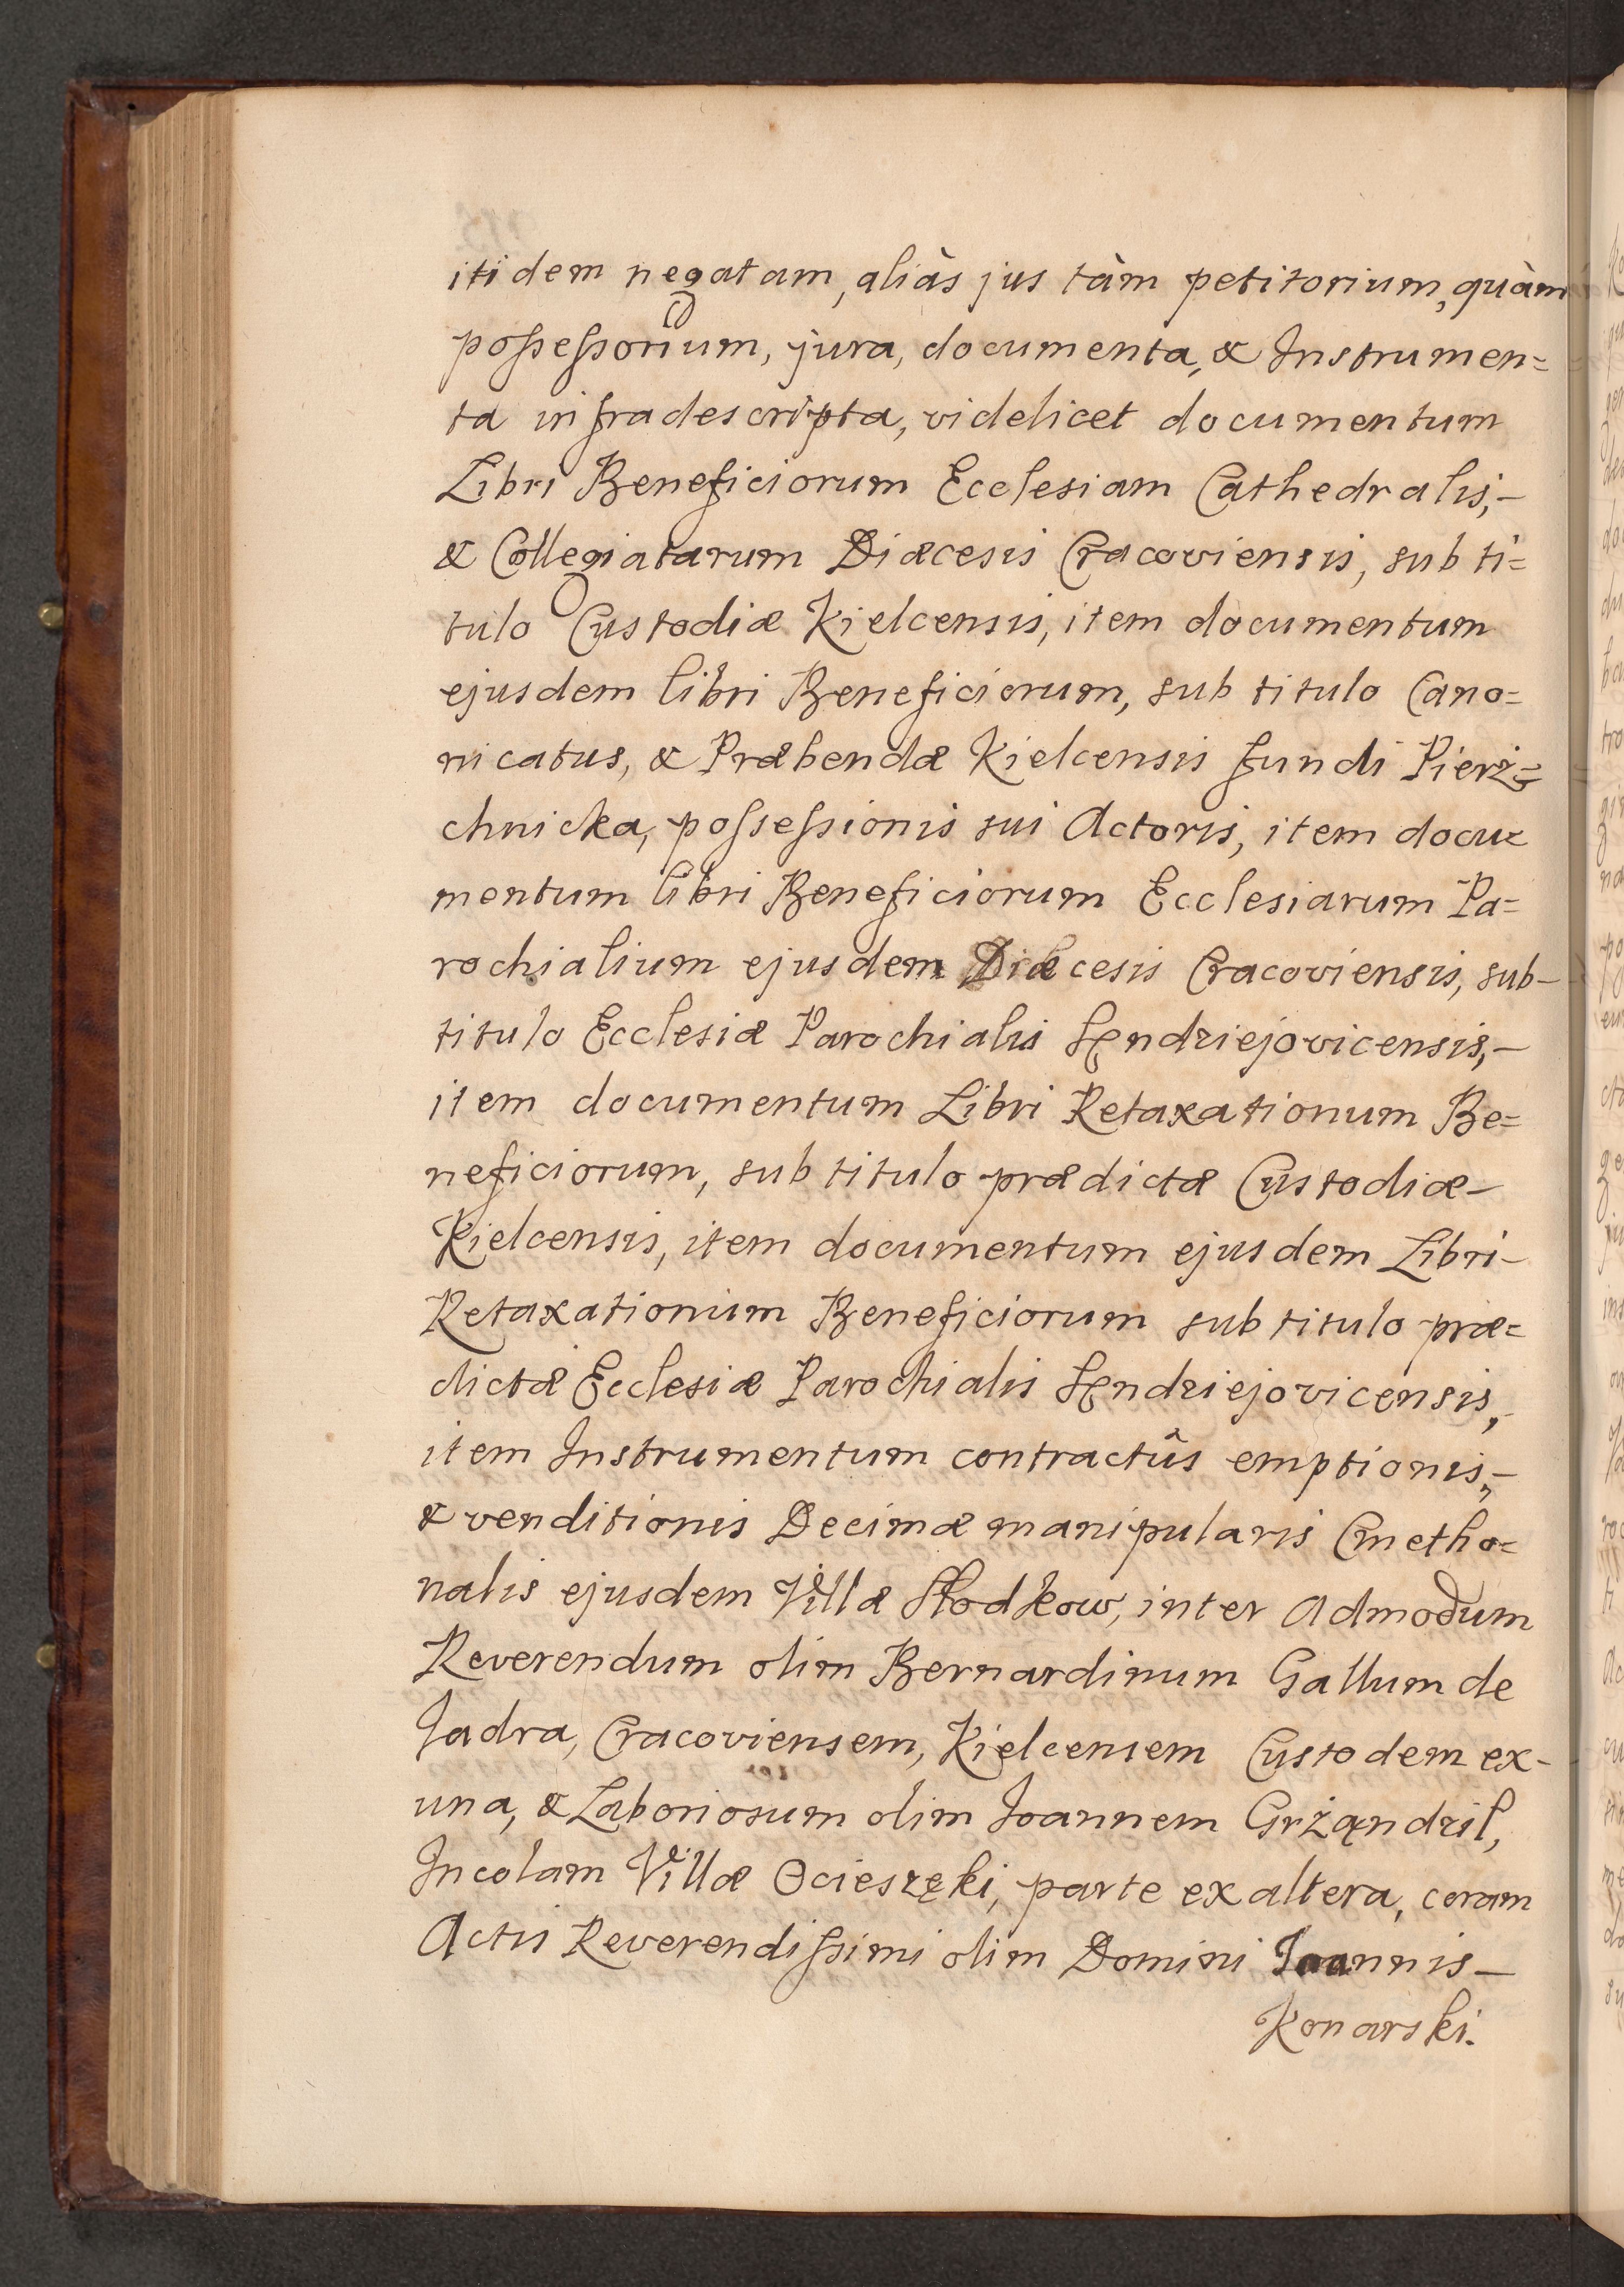 itidem negatam, aliàs jus tàm petitorium, quàm
possessorium, jura, documenta, & Instrumen=
ta infradescripta, videlicet documentum
Libri Beneficiorum Ecclesiam Cathedralis,-
& Collegiatarum Diæcesis Cracoviensis, sub ti=
tulo Custodiæ Kielcensis, item documentum
ejusdem libri Beneficiorum, sub titulo Cano=
nicatus, & Præbendæ Kielcensis fundi Pierż=
chnicka, possessionis sui Actoris, item docu=
mentum libri Beneficiorum Ecclesiarum Pa=
rochialium ejusdem Diæcesis Cracoviensis, sub-
titulo Ecclesiæ Parochialis Hendziejovicensis,-
item documentum Libri Retaxationum Be=
neficiorum, sub titulo prædictæ Custodiæ-
Kielcensis, item documentum ejusdem Libri-
Retaxationum Beneficiorum sub titulo præ=
dictæ Ecclesiæ Parochialis Hendziejovicensis,-
item Instrumentum contractûs emptionis,-
& venditionis Decimæ manipularis Cmetho=
nalis ejusdem Villæ Słodkow, inter Admodum
Reverendum olim Bernardinum Gallum de
Jadra, Cracoviensem, Kielcensem Custodem ex-
una, & Laboriosum olim Joannem Grżąndzil,
Incolam Villæ Ocieszęki, parte ex altera, coram
Actis Reverendissimi olim Domini Joannis-
Konarski.